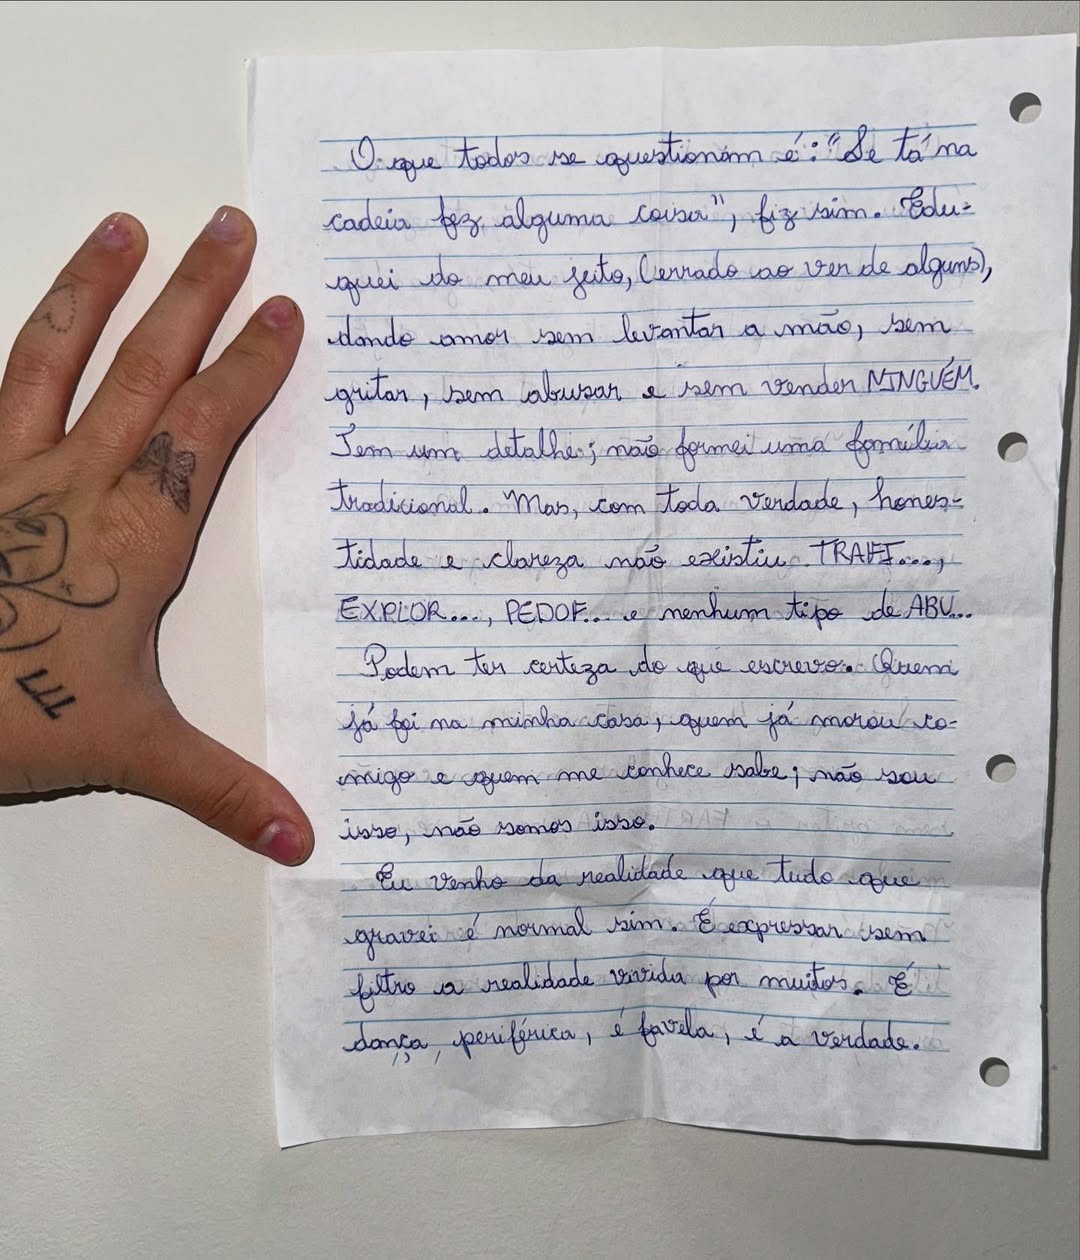 O que todos se questionam é: "Se tá na
cadeia fez alguma coisa", fiz sim. Edu-
quei do meu jeito, (errado ao ver de alguns),
dando amor sem levantar a mão, sem
gritar, sem abusar e sem vender NINGUÉM.
Tem um detalhe; não formei uma família
tradicional. Mas, com toda verdade, hones-
tidade e clareza não existiu TRAFI...,
EXPLOR..., PEDOF... e nenhum tipo de ABU...
Podem ter certeza do que escrevo. Quem
já foi na minha casa, quem já morou co-
migo e quem me conhece sabe; não sou
isso, não somos isso.
Eu venho da realidade que tudo que
gravei é normal sim. É expressar sem
filtro a realidade vivida por muitos. É
dança periférica, é favela, é a verdade.
777